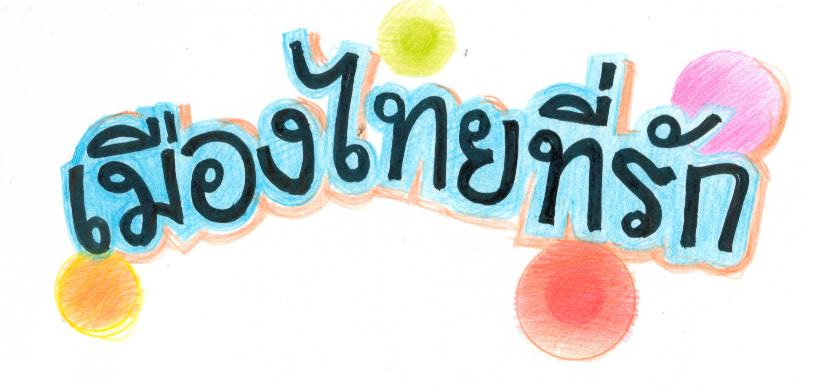 เมืองไทยที่รัก